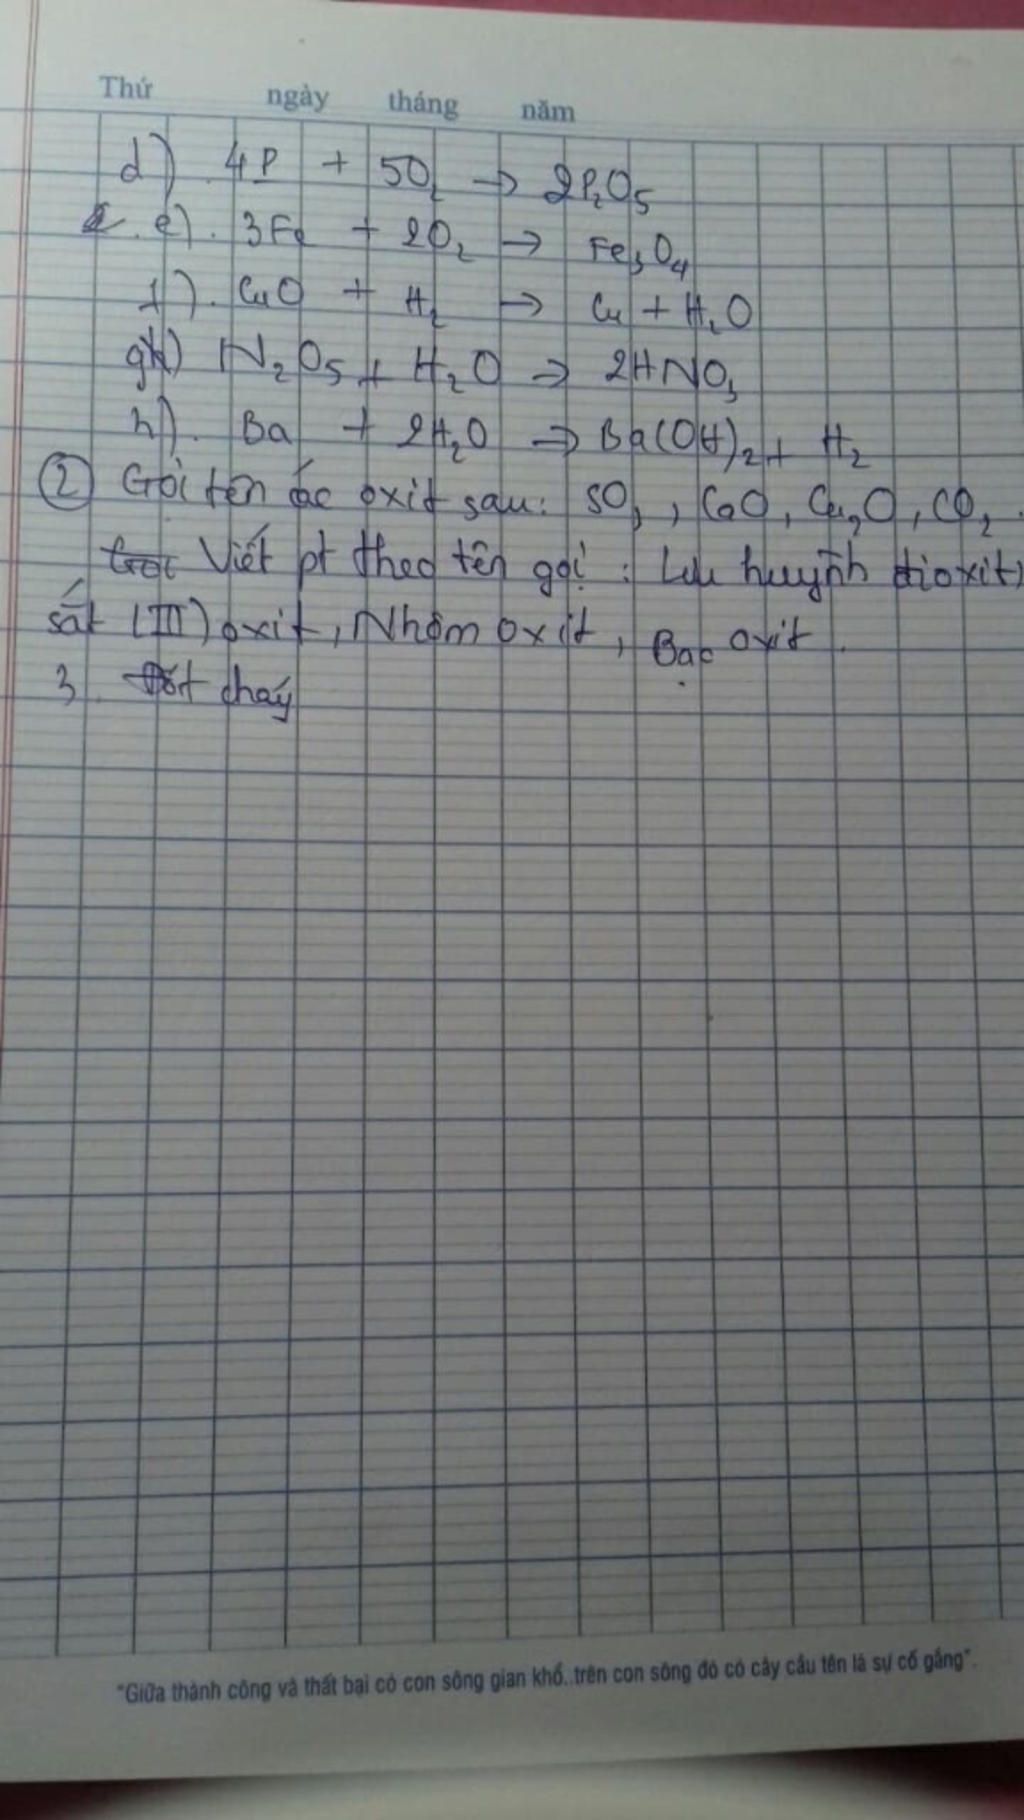 Thứ ngày tháng năm
d) 4P + 5O2 → 2P2O5
e). 3Fe + 2O2 → Fe3O4
f). CuO + H2 → Cu + H2O
g) N2O5 + H2O → 2HNO3
h). Ba + 2H2O → Ba(OH)2 + H2
② Gọi tên các oxit sau: SO3, CaO, Cu2O, CO2.
Viết pt theo tên gọi: Lưu huỳnh đioxit,
sắt (III) oxit, Nhôm oxit, Bạc oxit.
3. Đốt cháy
"Giữa thành công và thất bại có con sông gian khổ..trên con sông đó có cây cầu tên là sự cố gắng".